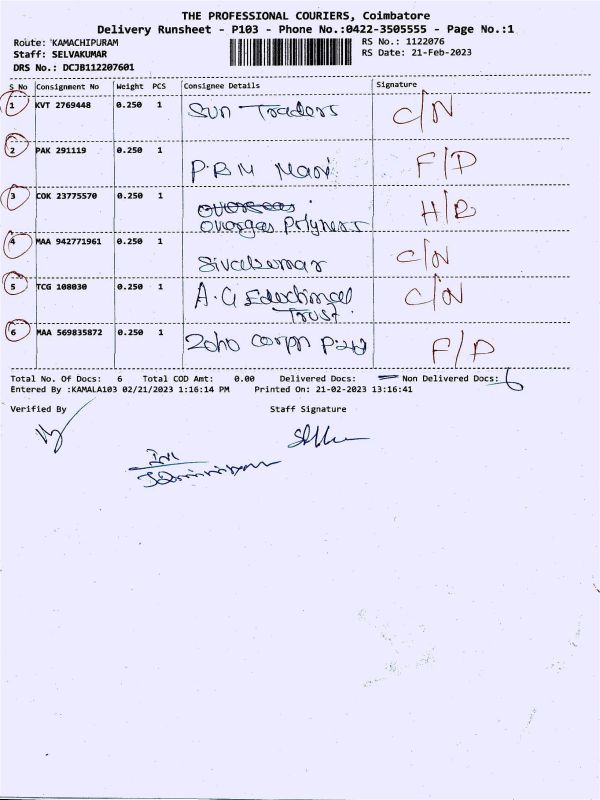 THE PROFESSIONAL COURIERS, Coimbatore
Delivery Runsheet - P103 - Phone No.:0422-3505555 - Page No.:1
Route: KAMACHIPURAM
RS No.: 1122076
Staff: SELVAKUMAR
RS Date: 21-Feb-2023
DRS No.: DCJB112207601
S No Consignment No Weight PCS Consignee Details Signature
1 KVT 2769448 0.250 1 Sun Traders C/N
2 PAK 291119 0.250 1 P.B.M Mani F/D
3 COK 23775570 0.250 1 Overgas Prlyners H/B
4 MAA 942771961 0.250 1 Sivakumar C/N
5 TCG 108030 0.250 1 A.G C/N
Trust.
6 MAA 569835872 0.250 1 Zoho corpn F/D
Total No. Of Docs: 6 Total COD Amt: 0.00 Delivered Docs: — Non Delivered Docs: 6
Entered By :KAMALA103 02/21/2023 1:16:14 PM Printed On: 21-02-2023 13:16:41
Verified By Staff Signature